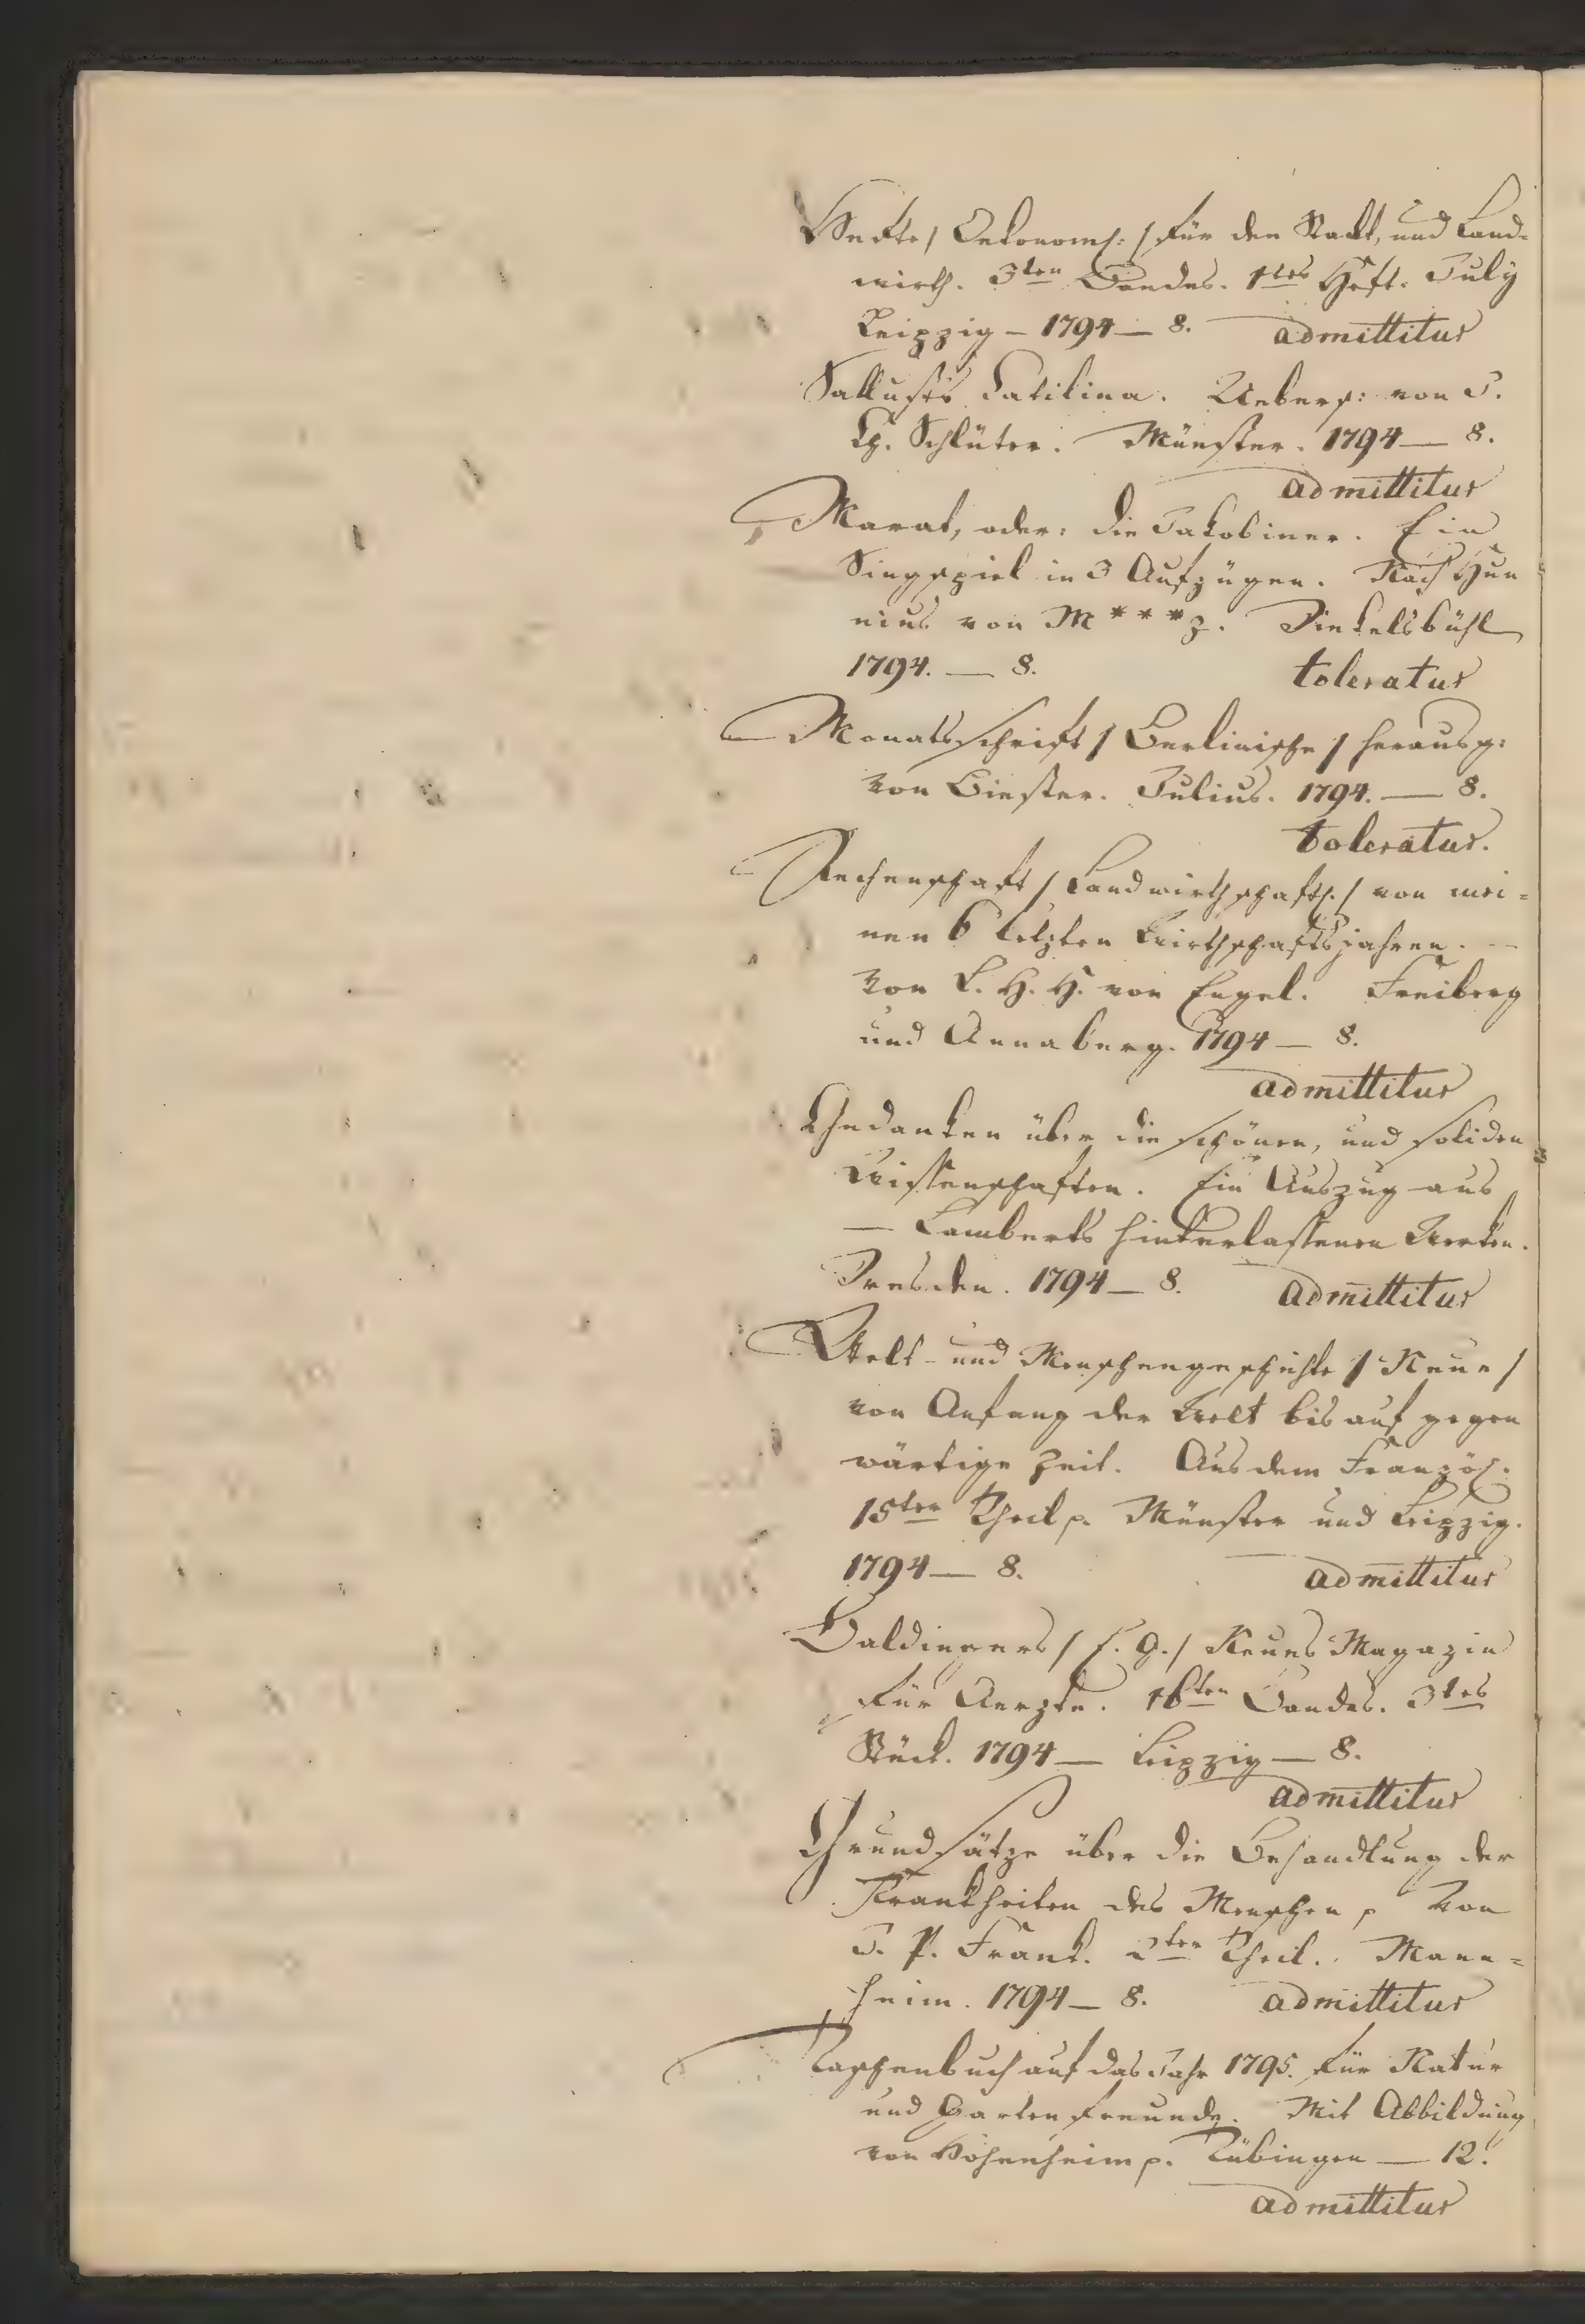 Hefte / Oekonoms: / für den Stadt, und Land-
wirth. 3ten Bandes. 1tes Heft. July
Leipzig – 1794 — 8. admittitur
Sallusts Catilina. Uebers: von J.
Ch. Schlüter. Münster. 1794 — 8.
admittitur
Marat, oder: die Jakobiner. Ein
Singspiel in 3 Aufzügen. Nach Hun
nius von M***z. Dinkelsbühl
1794. — 8. toleratur
Monatsschrift / Berlinische / herausg:
von Biester. Julius. 1794. — 8.
toleratur.
Rechenschaft / Landwirthschaftl. / von mei-
nen 6 letzten Wirthschaftsjahren. —
von L. H. H. von Engel. Freiberg
und Annaberg. 1794 — 8.
admittitur
Gedanken über die schönen, und soliden
Wissenschaften. Ein Auszug aus
— Lamberts hinterlassenen Werken.
Dresden. 1794 — 8. admittitur
Welt- und Menschengeschichte / Neue /
von Anfang der Welt bis auf gegen
wärtige Zeit. Aus dem Französ.
15ter Theil p. Münster und Leipzig.
1794 — 8. admittitur
Baldingers / E. G. / Neues Magazin
für Aerzte. 16ten Bandes. 3tes
Stück. 1794 — Leipzig — 8.
admittitur
Grundsätze über die Behandlung der
Krankheiten des Menschen p von
J. P. Frank. 2ter Theil. Mann-
heim. 1794 — 8. admittitur
Taschenbuch auf das Jahr 1795. für Natur
und Gartenfreunde. Mit Abbildung
von Hohenheim p. Tübingen — 12.
admittitur